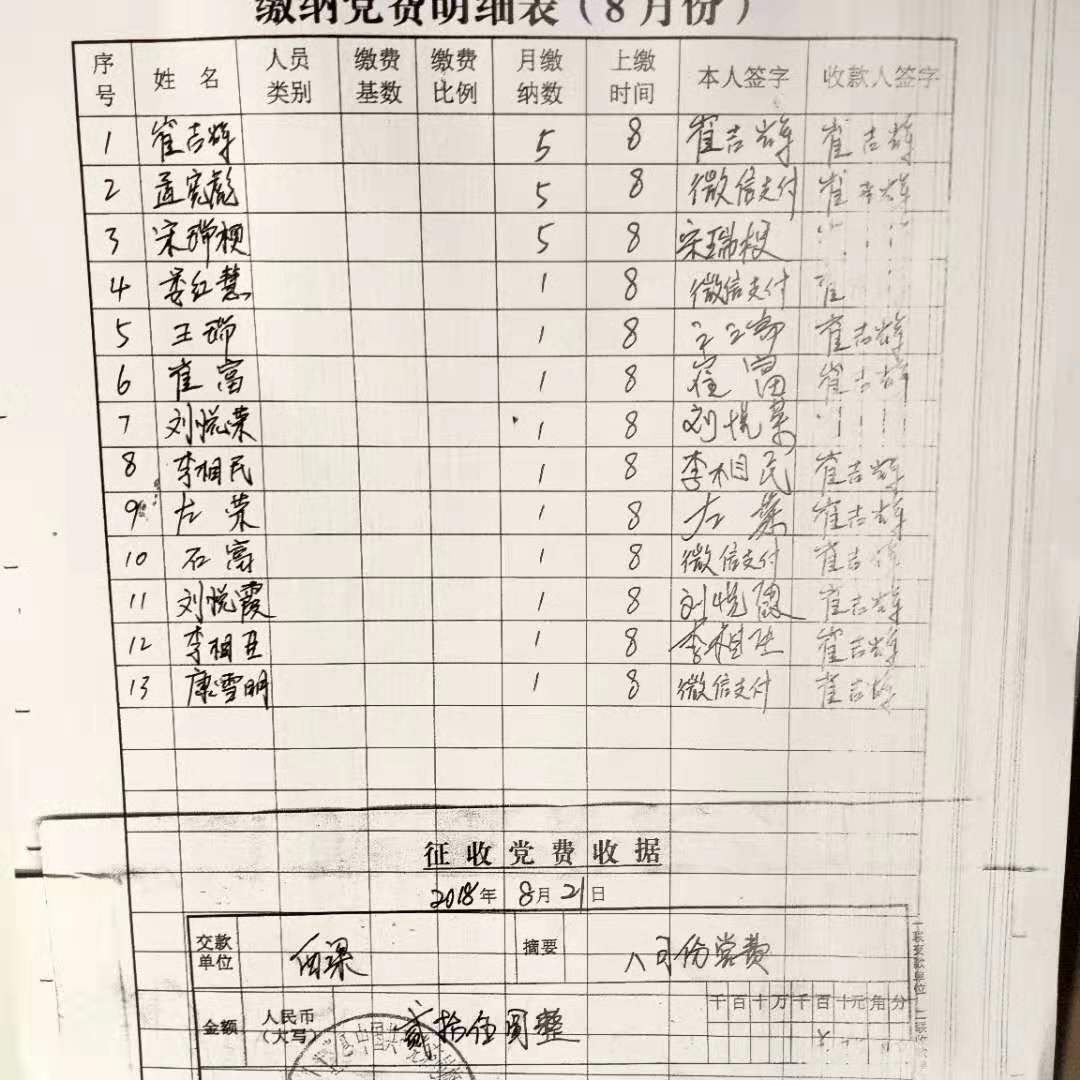 缴纳党费明细表（8月份）
序号 姓名 人员类别 缴费基数 缴费比例 月缴纳数 上缴时间 本人签字 收款人签字
1 崔吉辉 5 8 崔吉辉 崔吉辉
2 孟宪彪 5 8 微信支付 崔吉辉
3 宋瑞梗 5 8 宋瑞梗
4 娄红慧 1 8 微信支付 崔
5 王瑞 1 8 崔吉辉
6 崔富 1 8 崔富 崔吉辉
7 刘悦荣 1 8 刘悦荣
8 李相民 1 8 李相民 崔吉辉
9 左荣 1 8 左荣 崔吉辉
10 石富 1 8 微信支付 崔吉辉
11 刘悦霞 1 8 刘悦霞 崔吉辉
12 李相丑 1 8 崔吉辉
13 康雪明 1 8 微信支付 崔吉辉
征收党费收据
2018年 8月21日
交款单位 摘要 八月份党费
千百十万千百十元角分
金额 人民币（大写） 贰拾伍圆整